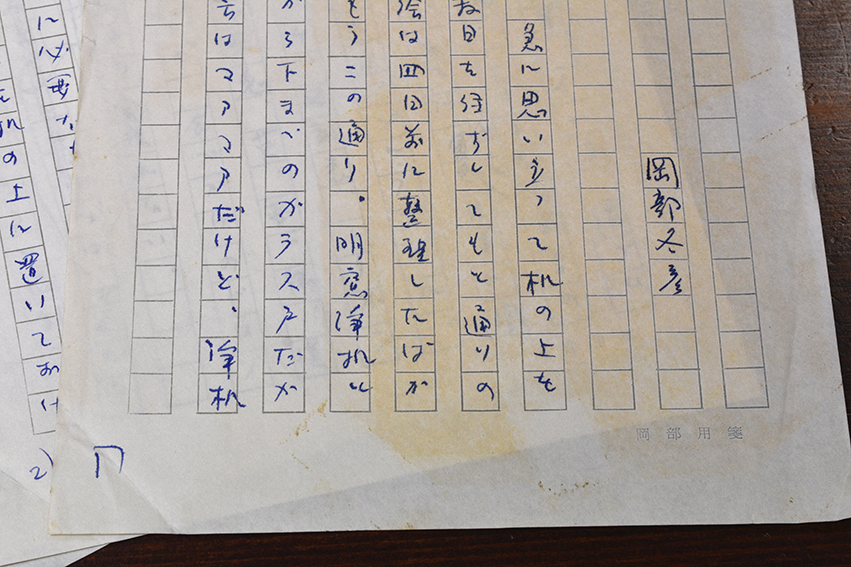 岡部冬彦
急に思い立って机の上を
日を経ずしてもと通りの
絵は四日前に整理したばか
うこの通り。明窓浄机と
から下までのガラス戸だが
はマアマアだけど、浄机
に必要な
の上に置いておけ
岡部用箋
2)